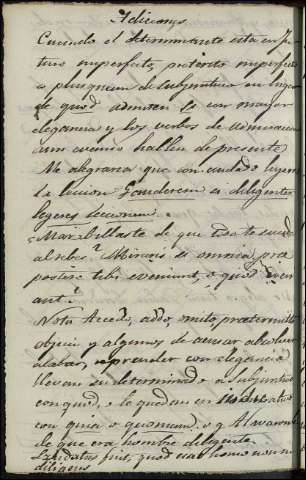 Adiciones.
Cuando el determinante está en fu-
turo imperfecto, pretérito imperfecto
o plusquam de subjuntivo en lugar
de quod admiten si con mayor
elegancia y los verbos de admiracion
aun cuando hallen de presente.
Me alegraria que con cuidado leyeras
la leccion Gauderem si diligenter
legeres leccionem.
Marabillaste de que todo te suceda
al rebes? Miraris si omnia præ
postere tibi eveniunt, o quod eveni
ant?
Nota. Accedo, addo, omito, prætermitto
objicio y algunos de acusar absolver
alabar, reprender con elegancia
llevan su determinado a Subjuntivo
con quod, o le quedan en indicativo
con quia o quoniam. v. g. Alabaron
de que era hombre diligente
Laudatus fuit, quod erat homo
diligens